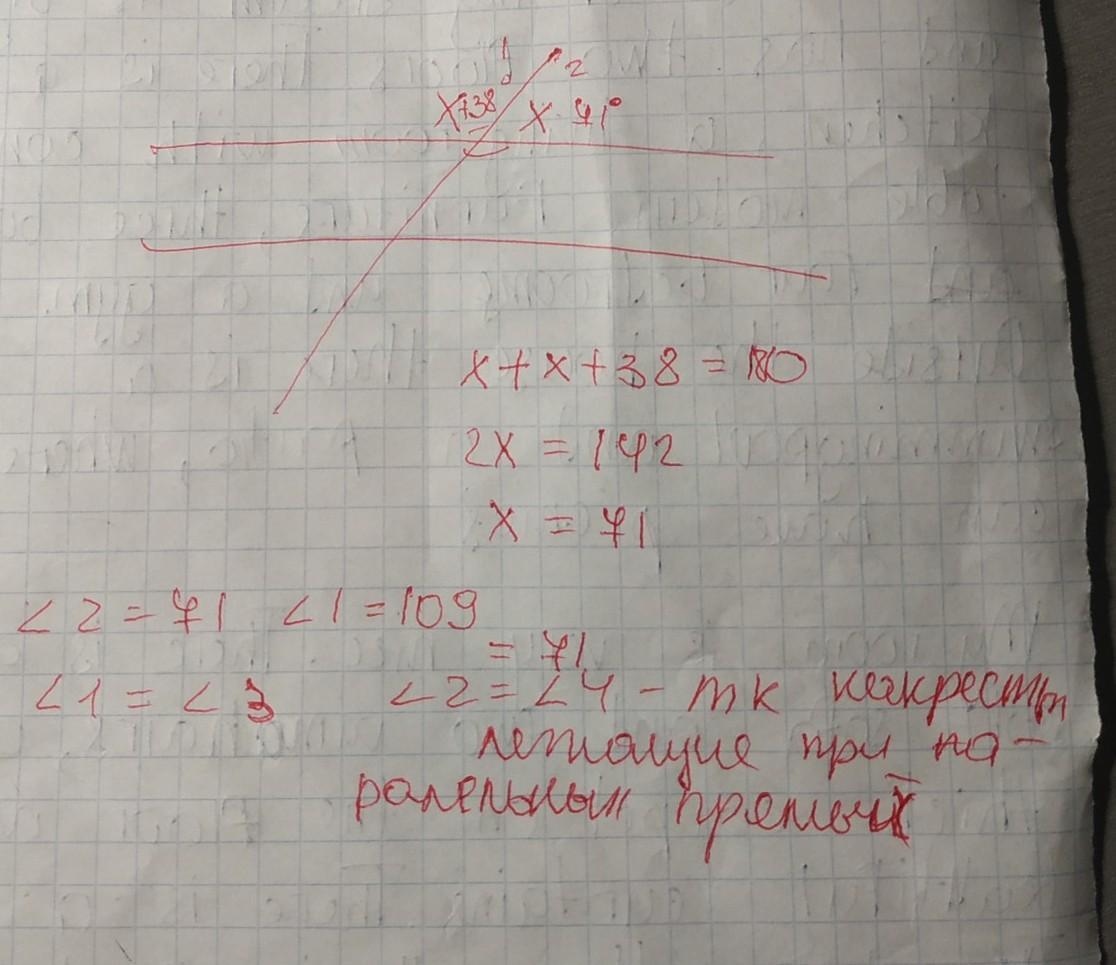 1 2
x+38 x 71°
x + x + 38 = 180
2x = 142
x = 71
∠2 = 71 ∠1 = 109
= 71
∠1 = ∠3 ∠2 = ∠4 - тк накрест
лежащие при па-
ралельных прямых